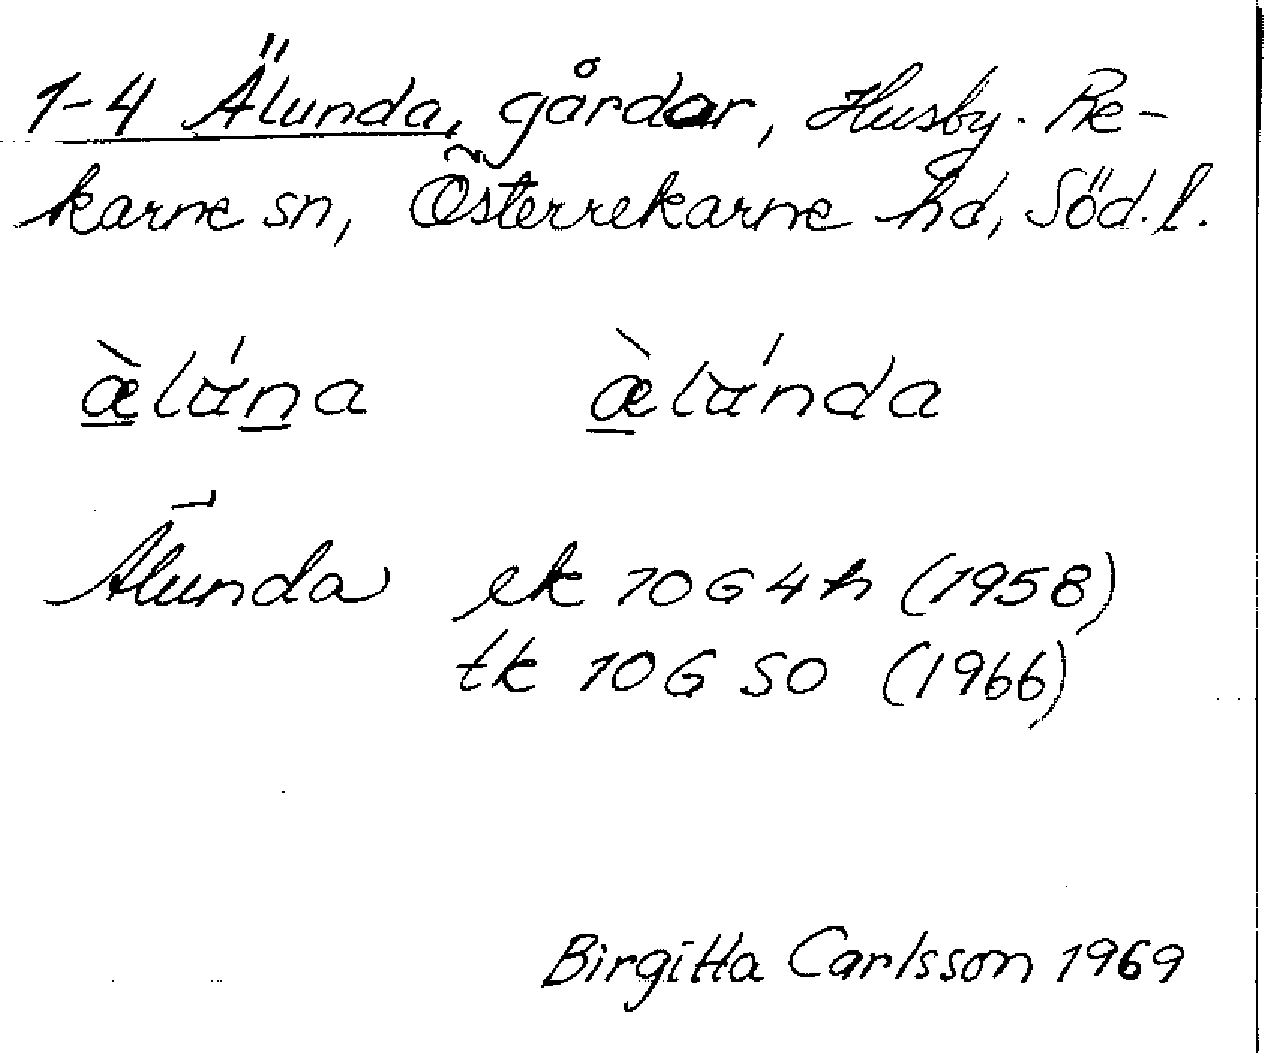 1-4 Älunda, gårdar, Husby-Re-
karne sn, Österrekarne hd, Söd. l.
æ̀lɑ́na æ̀lɑ́nda
Älunda ek 10G4h (1958)
tk 10G SO (1966)
Birgitta Carlsson 1969